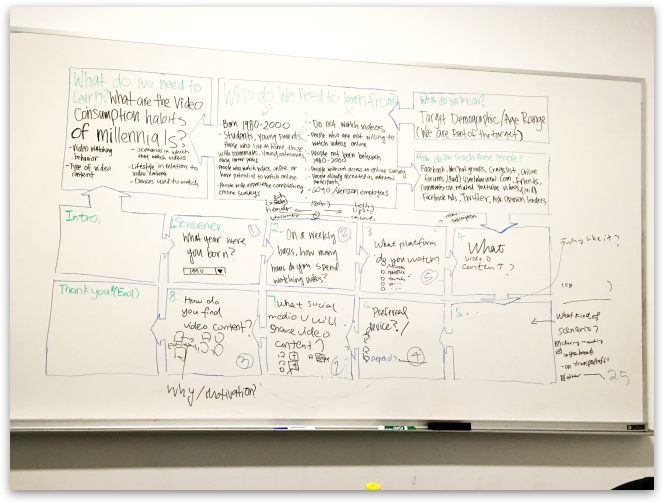 What do we need to
learn? What are the Video
Consumption habits
of millennials?
- Video watching
behavior
- Type of video
content
- Scenarios in which
they watch videos
- Lifestyle in relation
to video content
- Devices used to watch
Who do we need to learn from?
- Born 1980-2000
- Students, young parents,
those who live at home, those
with roommates, young professionals
- People who watch videos online, or
have potential to watch online
- People with experience completing
online surveys
- Do not watch videos
- People who are not willing to
watch videos online
- People not born between
1980-2000
- People without access to online survey
- People already recruited as
participants
employees
What do we know?
Target Demographic/Age Range
(We are part of the target)
How do we reach these people?
Facebook, WeChat groups, Craigslist, Online
forums, Friends,
comments on related Youtube videos,
Facebook Ads, Twitter, Ask Opinion leaders
Intro.
1. Screener
What year were
you born?
1990
①
2.
On a weekly
basis, how many
hours do you spend
watching videos?
②
3
What platform
do you watch?
⑤
4.
What
video
content?
why like it?
Thank you! (End)
8.
How do
you find
video content?
③
Why/motivation?
7.
What social
media u will
share video
content?
6.
Preferred
device?
depends
④
5.
What kind of
scenarios?
on transportation
25